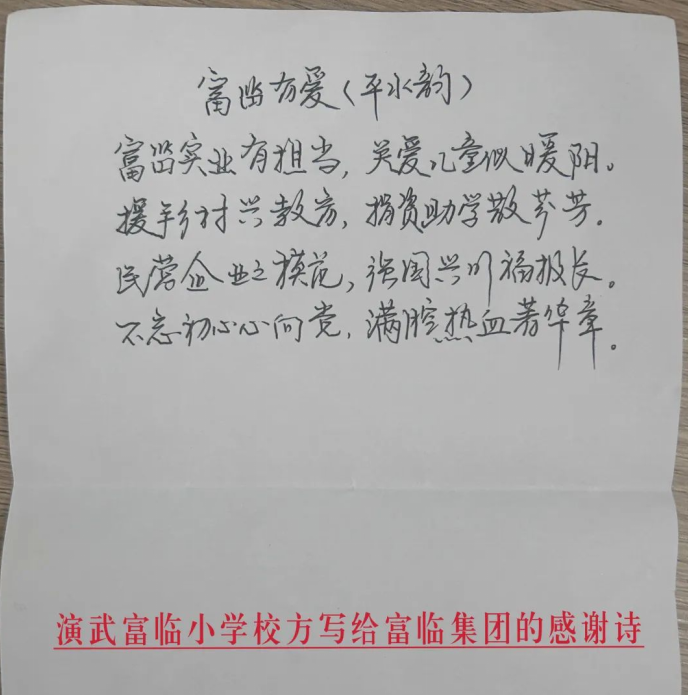 富临有爱（平水韵）
富临实业有担当，关爱儿童似暖阳。
援手乡村兴教育，捐资助学散芬芳。
民营企业之模范，强国兴川福报长。
不忘初心心向党，满腔热血著华章。
演武富临小学校方写给富临集团的感谢诗